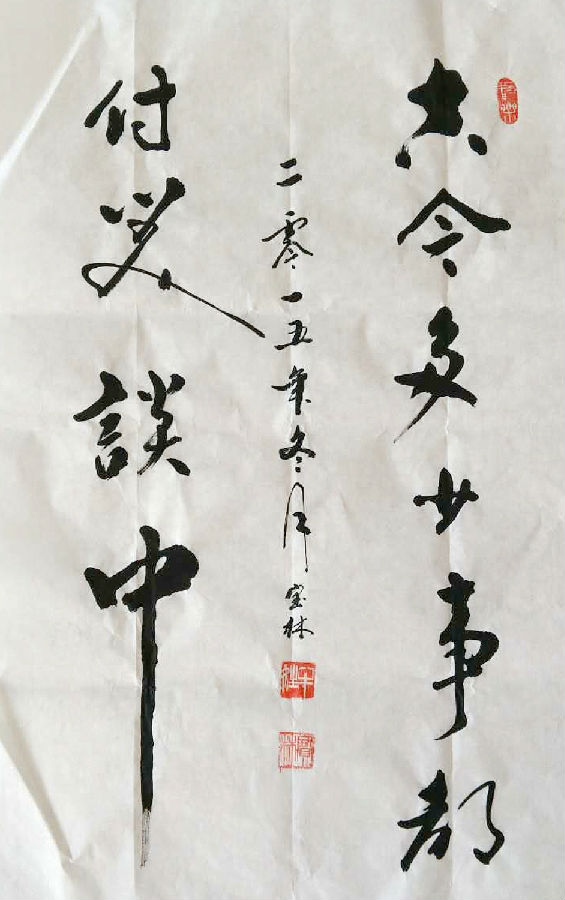 古今多少事都
付笑談中
二零一五年冬月宝林